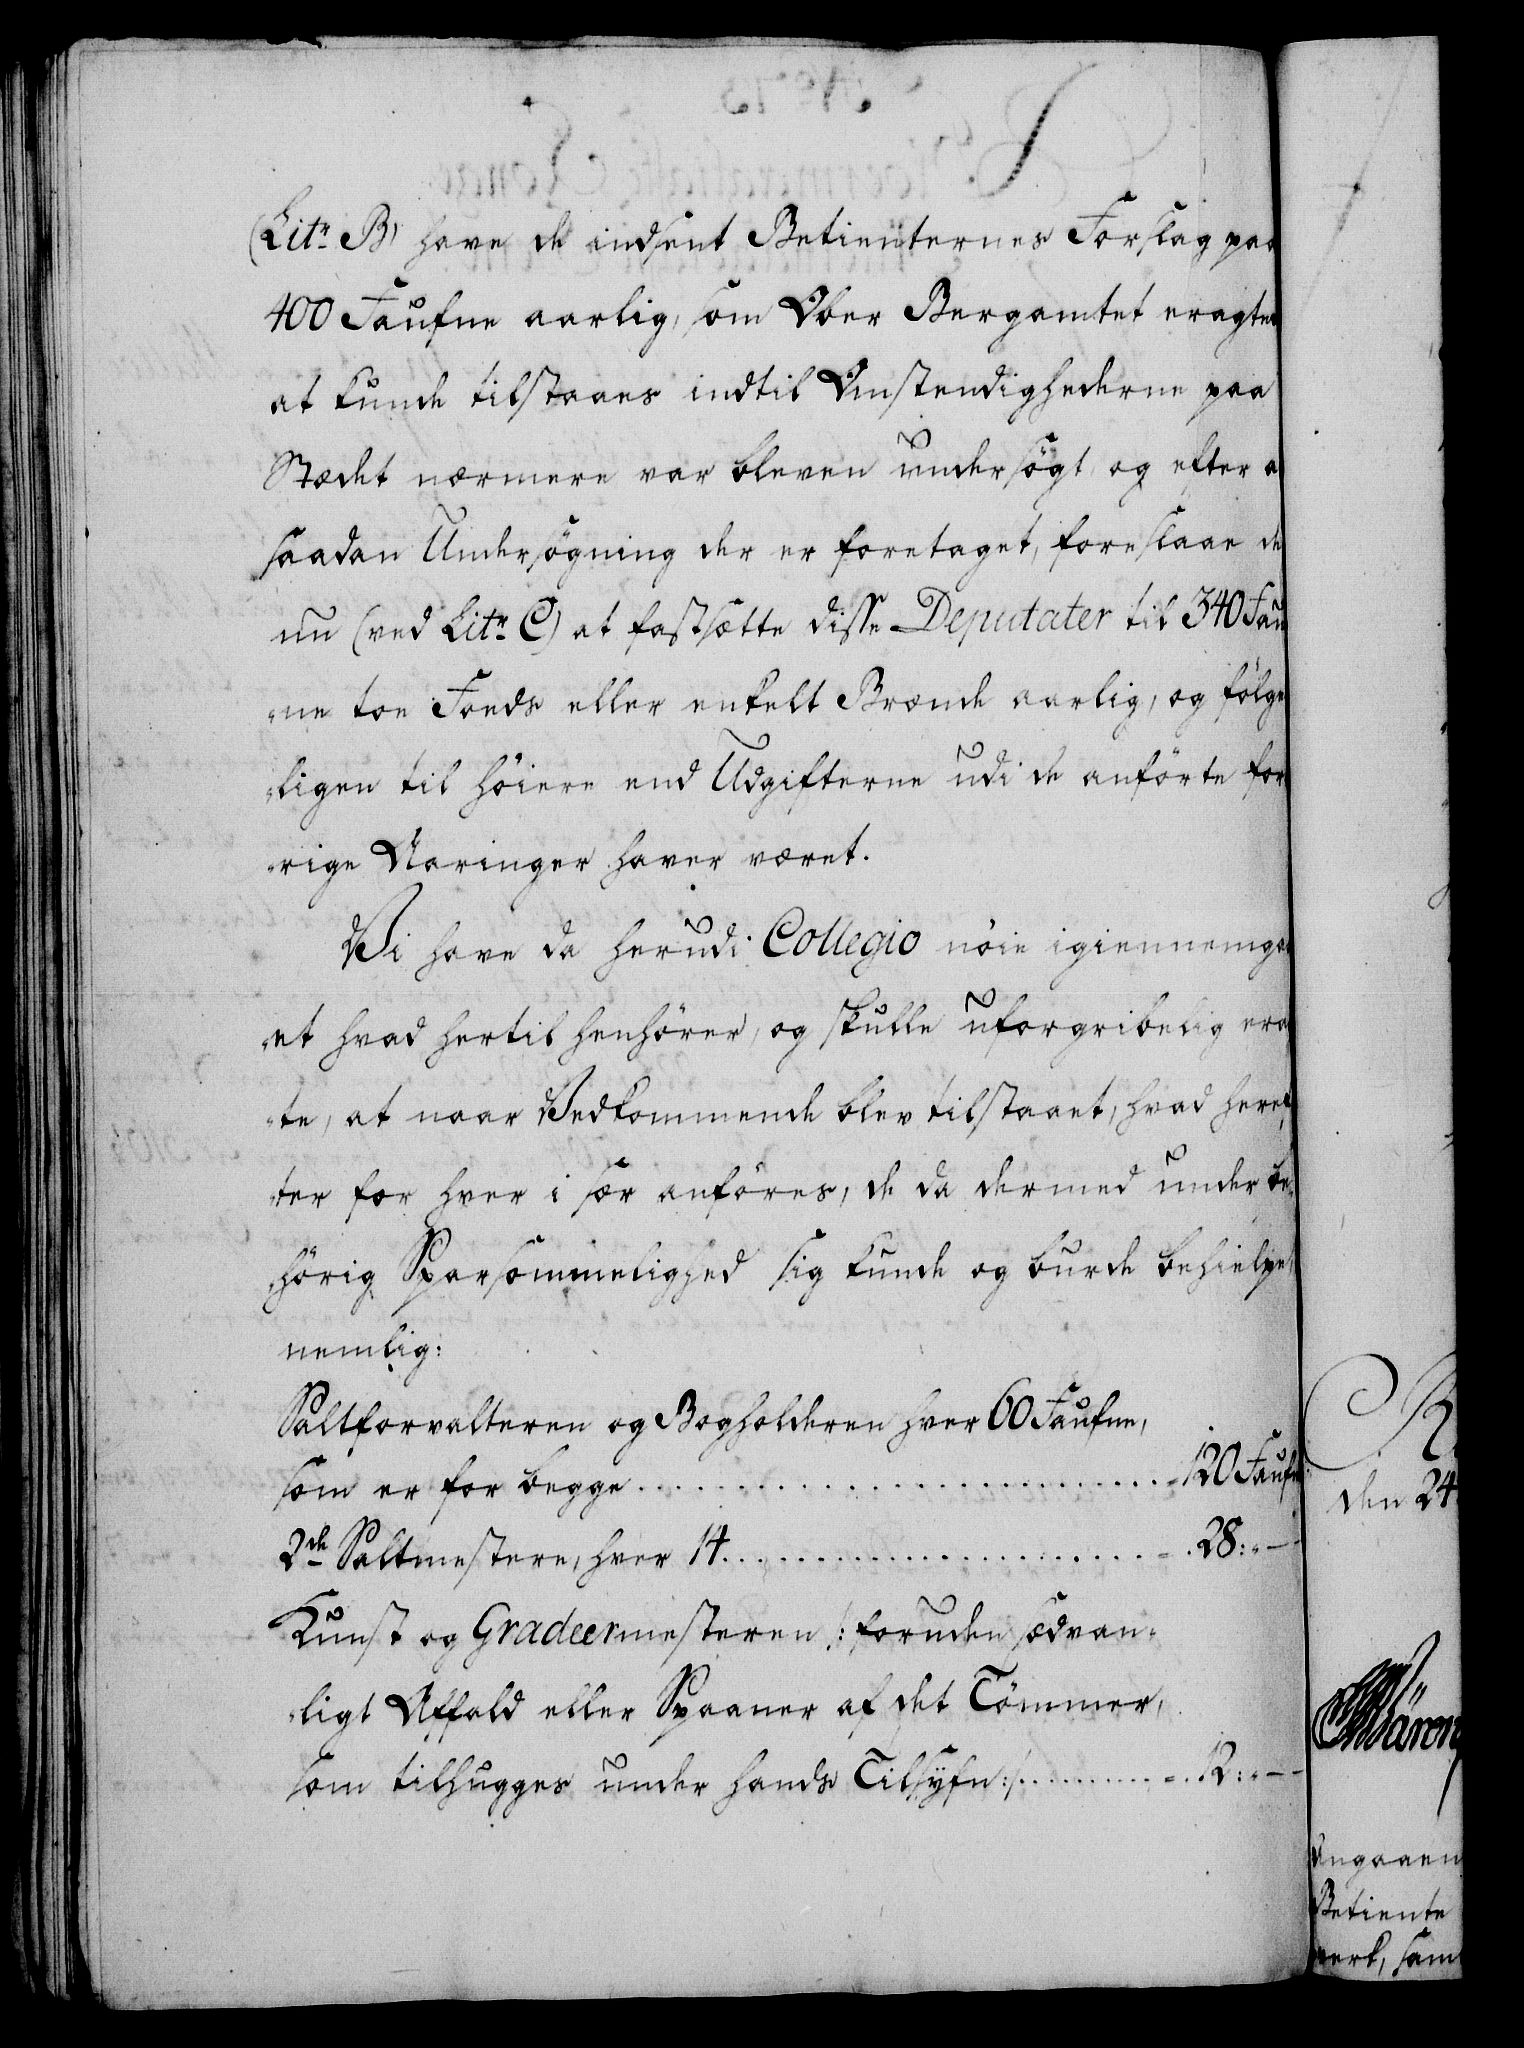 (Litr B) have de indsent Betienternes Forslag paa
400 Faufne aarlig, som Ober Bergamtet eragter
at kunde tilstaaes indtil Omstendighederne paa
Stædet nærmere var bleven undersögt, og efter a
saadan Undersögning der er foretaget, foreslaae de
nu (ved Litr C) at fastsætte disse Deputater til 340 Fau
ne toe Foeds eller enkelt Brænde aarlig, og fölge
ligen til höiere end Udgifterne udi de anförte for
rige Aaringer haver været.
Vi have da herudi Collegio nöie igiennemga
et hvad hertil henhörer, og skulle uforgribelig erag
te, at naar Vedkommende blev tilstaaet, hvad heref
ter for hver i sær anföres, de da dermed under be
hörig Sparsommelighed sig kunde og burde behielpe,
nemlig:
Saltforvalteren og Bogholderen hver 60 Faufne,
som er for begge . . . . . . . . . . 120 Faufn
2de Saltmestere, hver 14 . . . . . . . . . . 28: " —
Kunst og Gradeermesteren /: foruden sædvan=
ligt Affald eller Spaaner af det Tömmer,
som tilhugges under hands Tilsyfn :/ . . . . . . 12: " —
den 24
Angaaen
Betiente
verk, sam